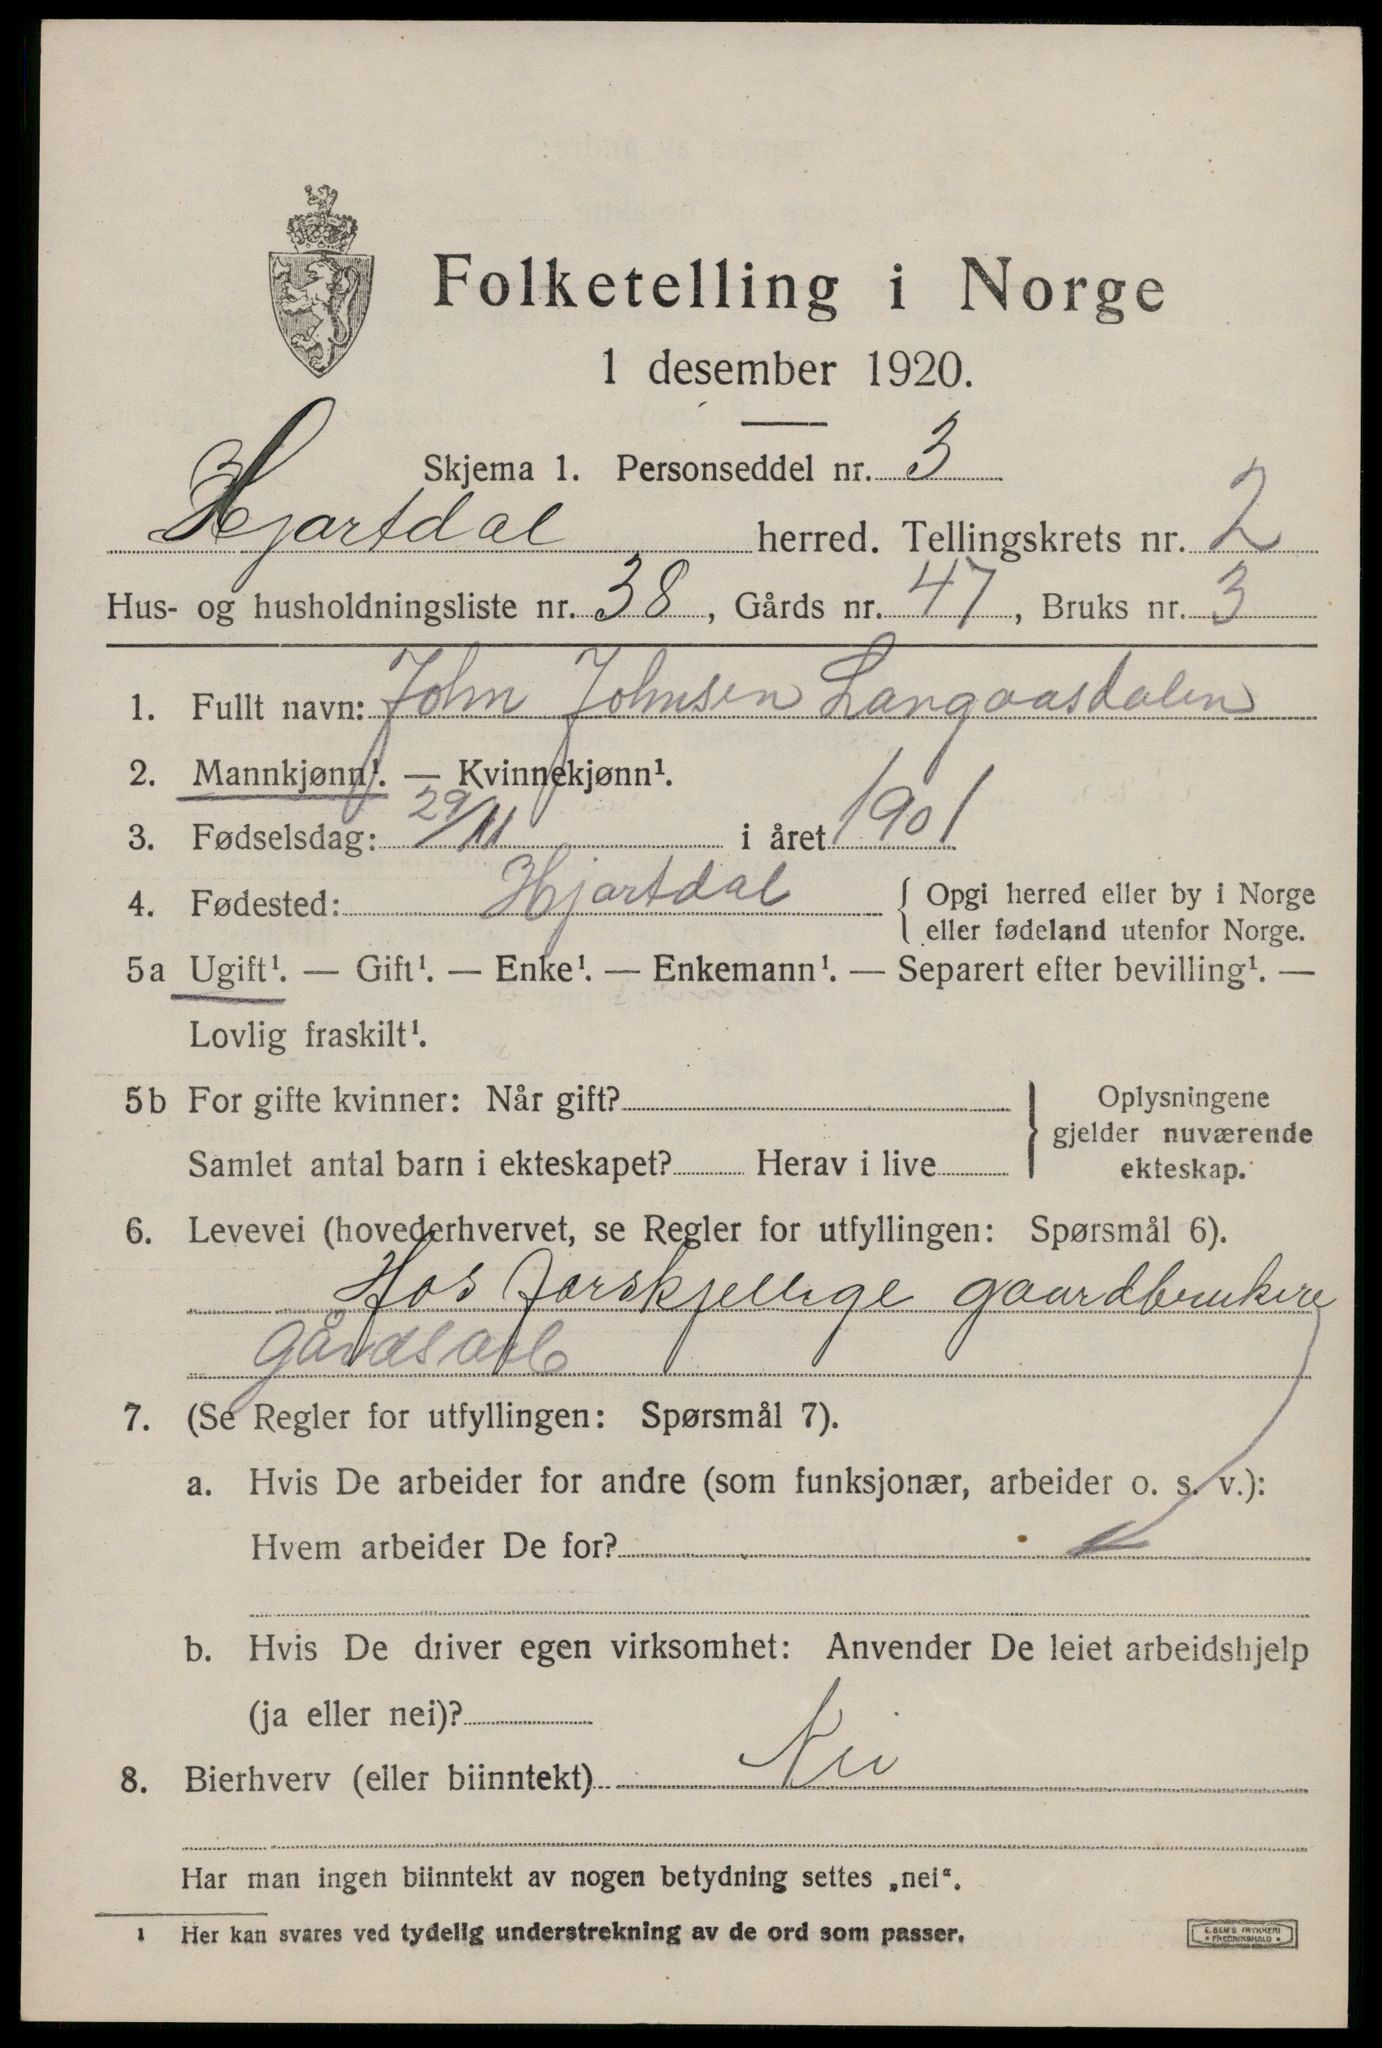 Folketelling i Norge
1 desember 1920.
Skjema 1. Personseddel nr. 3
Hjartdal herred. Tellingskrets nr. 2
Hus- og husholdningsliste nr. 38, Gårds nr. 47, Bruks nr. 3
1. Fullt navn: John Johnsen Langaasdalen
2. Mannkjønn¹. — Kvinnekjønn¹.
3. Fødselsdag: 29/11 i året 1901
4. Fødested: Hjartdal { Opgi herred eller by i Norge
eller fødeland utenfor Norge.
5a Ugift¹. — Gift¹. — Enke¹. — Enkemann¹. — Separert efter bevilling¹. —
Lovlig fraskilt¹.
5b For gifte kvinner: Når gift?
Samlet antal barn i ekteskapet? Herav i live
Oplysningene
gjelder nuværende
ekteskap.
6. Levevei (hovederhvervet, se Regler for utfyllingen: Spørsmål 6).
Hos forskjellige gaardbrukire
gårdsarb
7. (Se Regler for utfyllingen: Spørsmål 7).
a. Hvis De arbeider for andre (som funksjonær, arbeider o. s. v.):
Hvem arbeider De for?
b. Hvis De driver egen virksomhet: Anvender De leiet arbeidshjelp
(ja eller nei)?
8. Bierhverv (eller biinntekt) Nei
Har man ingen biinntekt av nogen betydning settes „nei“.
1 Her kan svares ved tydelig understrekning av de ord som passer.
E. SEM'S TRYKKERI
FREDRIKSHALD